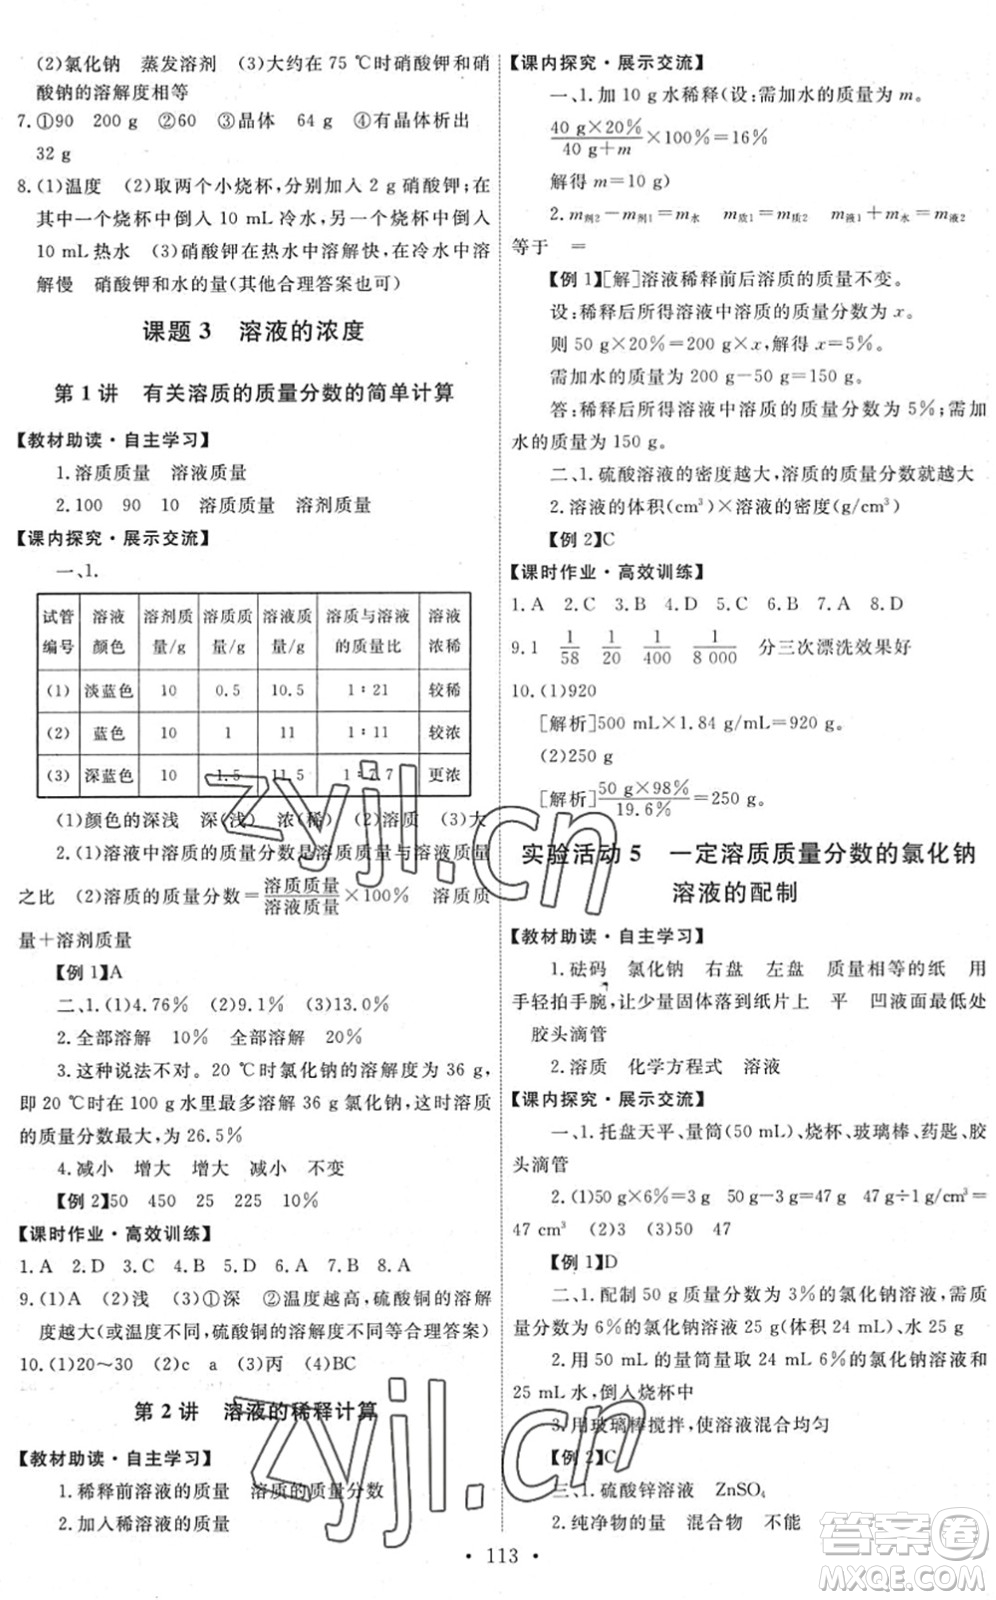 (2)氯化钠　蒸发溶剂　(3)大约在 75 ℃时硝酸钾和硝
酸钠的溶解度相等
7.①90　200 g　②60　③晶体　64 g　④有晶体析出
32 g
8.(1)温度　(2)取两个小烧杯,分别加入 2 g 硝酸钾;在
其中一个烧杯中倒入 10 mL 冷水,另一个烧杯中倒入
10 mL 热水　(3)硝酸钾在热水中溶解快,在冷水中溶
解慢　硝酸钾和水的量(其他合理答案也可)
课题 3　溶液的浓度
第 1 讲　有关溶质的质量分数的简单计算
【教材助读·自主学习】
1.溶质质量　溶液质量
2.100　90　10　溶质质量　溶剂质量
【课内探究·展示交流】
一、1.
试管编号　溶液颜色　溶剂质量/g　溶质质量/g　溶液质量/g　溶质与溶液的质量比　溶液浓稀
(1)　淡蓝色　10　0.5　10.5　1∶21　较稀
(2)　蓝色　10　1　11　1∶11　较浓
(3)　深蓝色　10　1.5　11.5　1∶7.7　更浓
(1)颜色的深浅　深(浅)　浓(稀)　(2)溶质　(3)大
2.(1)溶液中溶质的质量分数是溶质质量与溶液质量
之比　(2)溶质的质量分数=溶质质量/溶液质量×100%　溶质质
量+溶剂质量
【例 1】A
二、1.(1)4.76%　(2)9.1%　(3)13%
2.全部溶解　10%　全部溶解　20%
3.这种说法不对。20 ℃时氯化钠的溶解度为 36 g,
即 20 ℃时在 100 g 水里最多溶解 36 g 氯化钠,这时溶质
的质量分数最大,为 26.5%
4.减小　增大　增大　减小　不变
【例 2】50　450　25　225　10%
【课时作业·高效训练】
1.A　2.D　3.C　4.B　5.D　6.A　7.B　8.A
9.(1)A　(2)浅　(3)①深　②温度越高,硫酸铜的溶解
度越大(或温度不同,硫酸铜的溶解度不同等合理答案)
10.(1)20~30　(2)c　a　(3)丙　(4)BC
第 2 讲　溶液的稀释计算
【教材助读·自主学习】
1.稀释前溶液的质量　溶质的质量分数
2.加入稀溶液的质量
【课内探究·展示交流】
一、1.加 10 g 水稀释(设:需加水的质量为 m。
40 g×20%/40 g+m×100%=16%
解得 m=10 g)
2.m剂2-m剂1=m水　m质1=m质2　m液1+m水=m液2
等于　=
【例 1】[解]溶液稀释前后溶质的质量不变。
设:稀释后所得溶液中溶质的质量分数为 x。
则 50 g×20%=200 g×x,解得 x=5%。
需加水的质量为 200 g-50 g=150 g。
答:稀释后所得溶液中溶质的质量分数为 5%;需加
水的质量为 150 g。
二、1.硫酸溶液的密度越大,溶质的质量分数就越大
2.溶液的体积(cm³)×溶液的密度(g/cm³)
【例 2】C
【课时作业·高效训练】
1.A　2.C　3.B　4.D　5.C　6.B　7.A　8.D
9.1　1/58　1/20　1/400　1/8 000　分三次漂洗效果好
10.(1)920
[解析]500 mL×1.84 g/mL=920 g。
(2)250 g
[解析]50 g×98%/19.6%=250 g。
实验活动 5　一定溶质质量分数的氯化钠
溶液的配制
【教材助读·自主学习】
1.砝码　氯化钠　右盘　左盘　质量相等的纸　用
手轻拍手腕,让少量固体落到纸片上　平　凹液面最低处
胶头滴管
2.溶质　化学方程式　溶液
【课内探究·展示交流】
一、1.托盘天平、量筒(50 mL)、烧杯、玻璃棒、药匙、胶
头滴管
2.(1)50 g×6%=3 g　50 g-3 g=47 g　47 g÷1 g/cm³=
47 cm³　(2)3　(3)50　47
【例 1】D
二、1.配制 50 g 质量分数为 3%的氯化钠溶液,需质
量分数为 6%的氯化钠溶液 25 g(体积 24 mL)、水 25 g
2.用 50 mL 的量筒量取 24 mL 6%的氯化钠溶液和
25 mL 水,倒入烧杯中
3.用玻璃棒搅拌,使溶液混合均匀
【例 2】C
三、1.硫酸锌溶液　ZnSO₄
2.纯净物的量　混合物　不能
• 113 •
zyjl.cn
zyjl.cn
答案圈
MXQE.COM